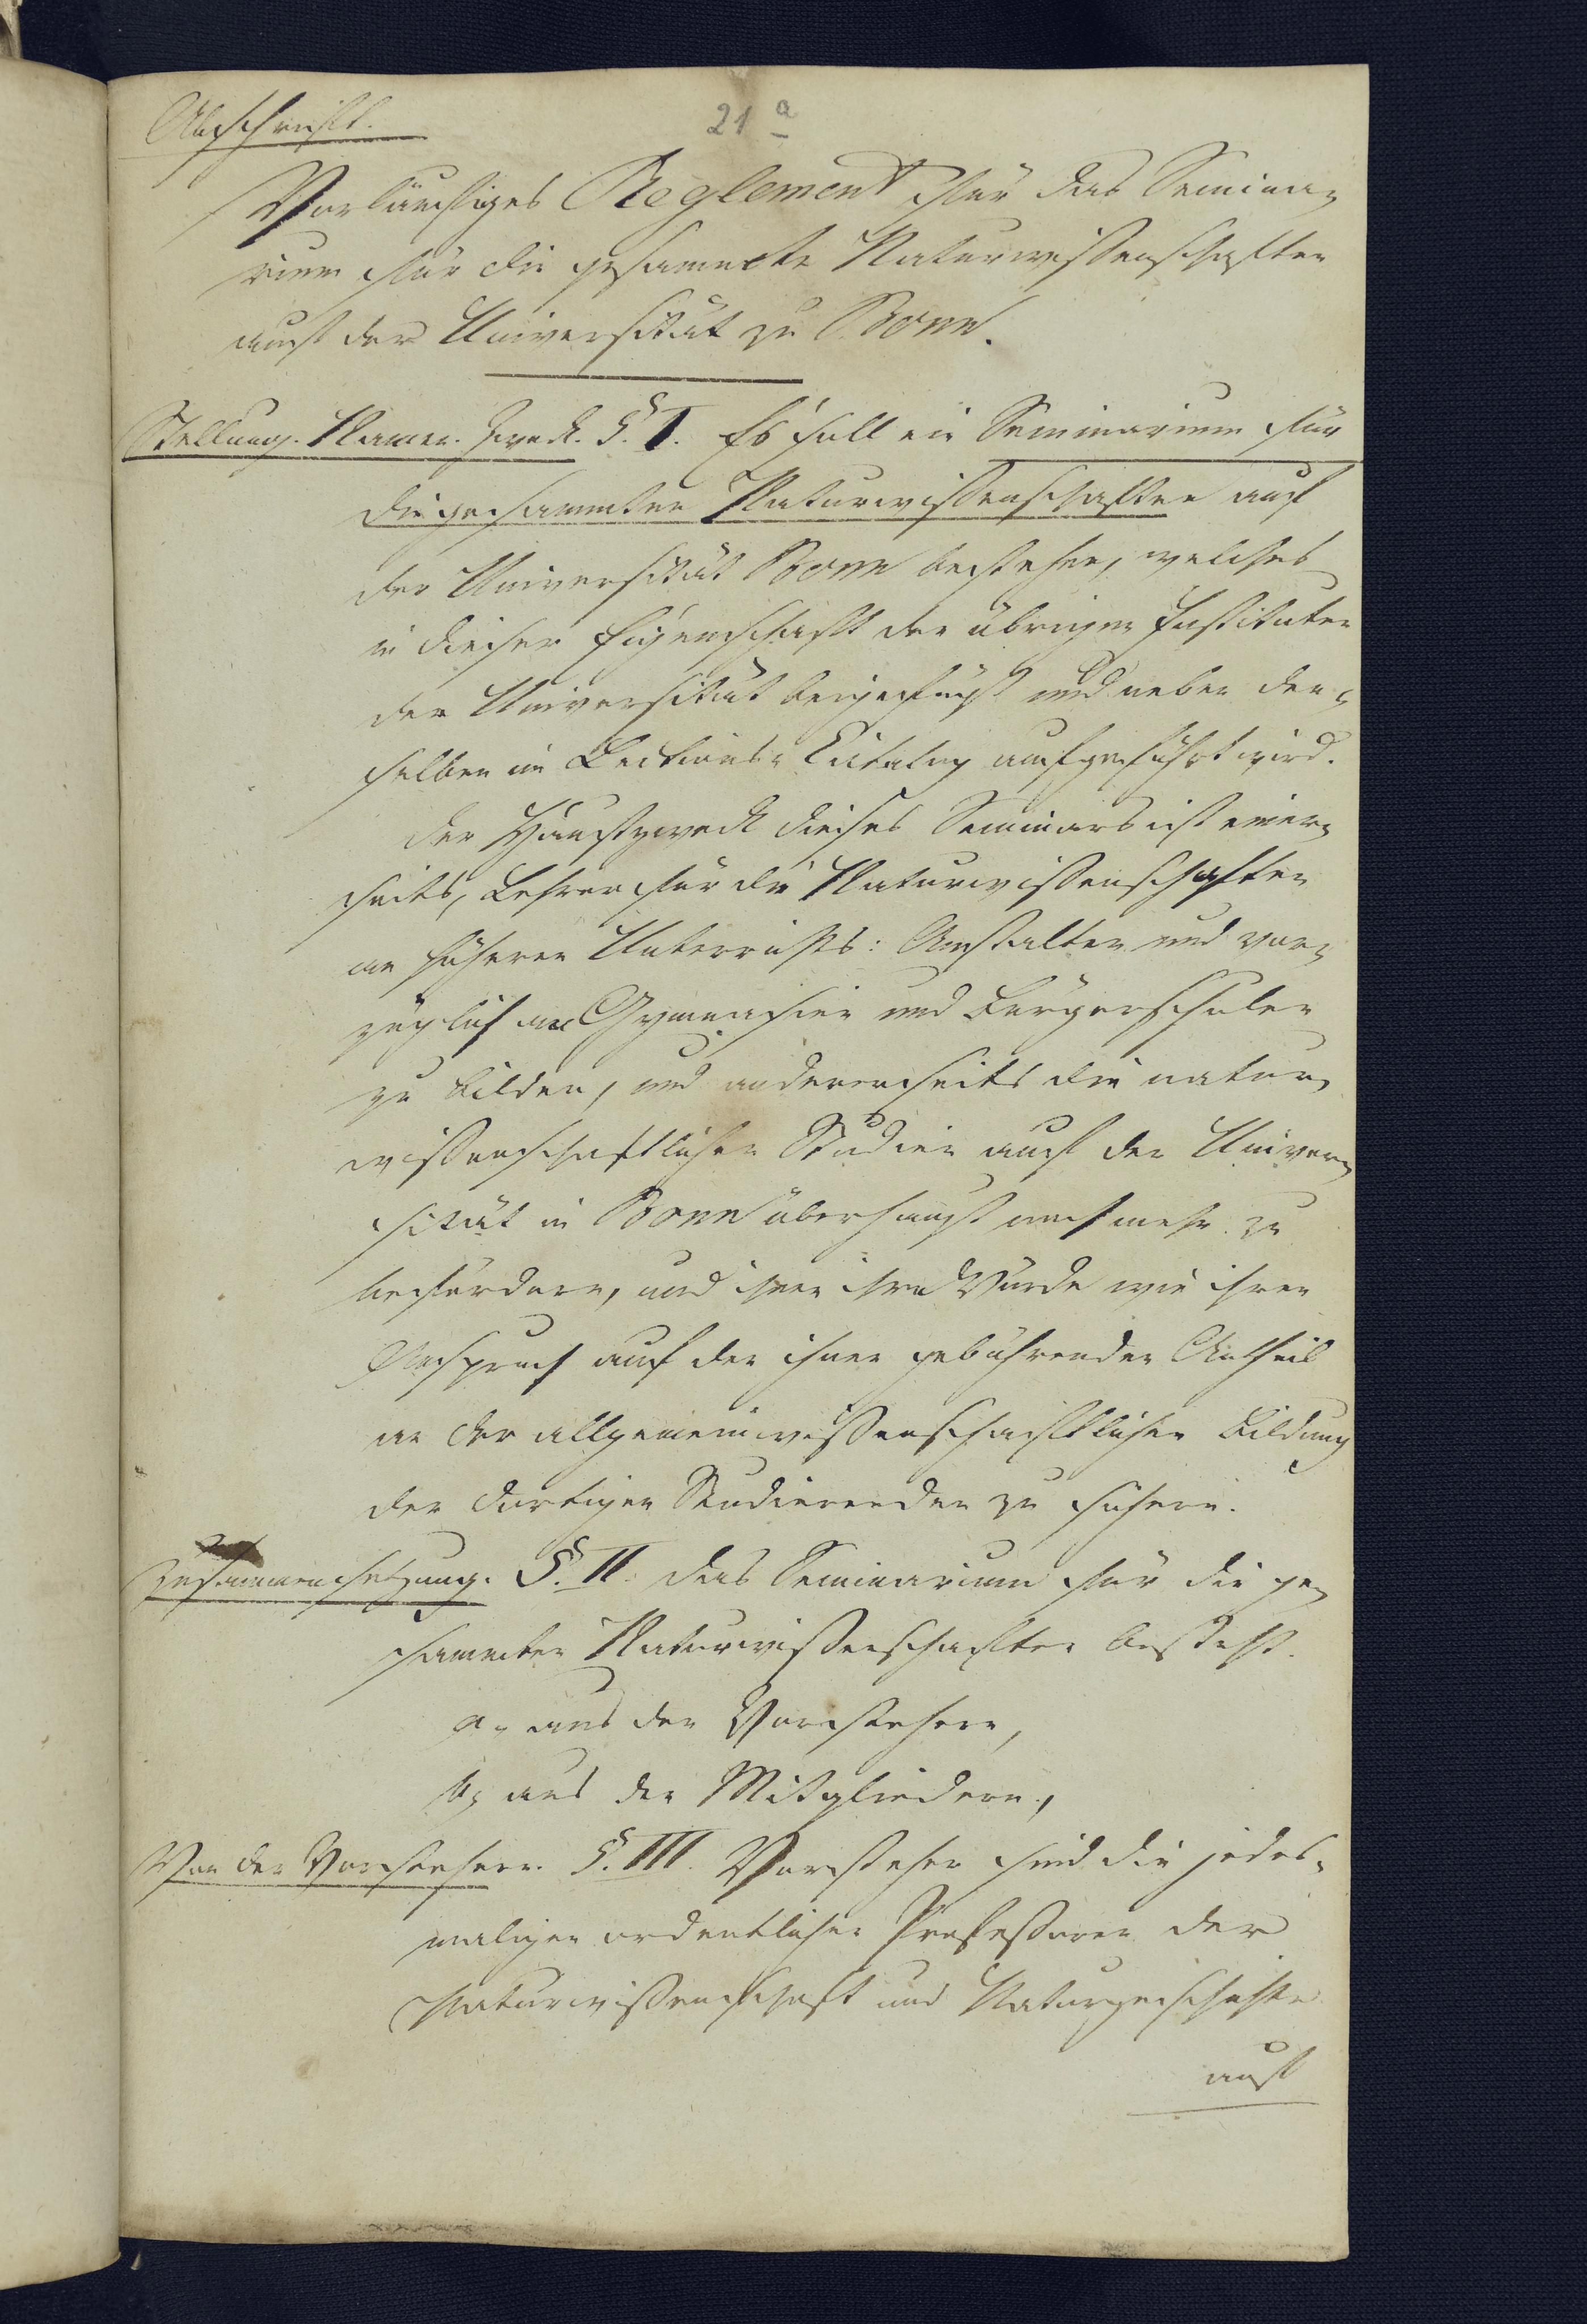 Abschrift.
21 a
Vorläufiges Reglement für das Semina-
rium für die gesammte Naturwissenschaften
auf der Universität zu Bonn.
Stellung. Namen. Zweck. §. I. Es soll ein Seminarium für
die gesammten Naturwissenschaften auf
der Universität Bonn bestehen, welches
in dieser Eigenschaft den übrigen Instituten
der Universität beigefügt und neben den-
selben im Lections-Catalog aufgeführt wird.
Der Hauptzweck dieses Seminars ist einer-
seits, Lehrer für die Naturwissenschaften
an höheren Unterrichts: Anstalten und vor-
züglich an Gymnasien und Bürgerschulen
zu bilden, und andererseits die natur-
wissenschaftlichen Studien auf der Univer-
sität in Bonn überhaupt noch mehr zu
befördern, und ihnen ihre Würde wie ihren
Anspruch auf den ihnen gebührenden Antheil
an der allgemein wissenschaftlichen Bildung
der dortigen Studierenden zu sichern.
Zusammensetzung. §. II. Das Seminarium für die ge-
sammten Naturwissenschaften besteht.
a, aus den Vorstehern,
b, aus den Mitgliedern,
Von den Vorstehern. §. III. Vorsteher sind die jedes-
maligen ordentlichen Professoren der
Naturwissenschaft und Naturgeschichte
auf